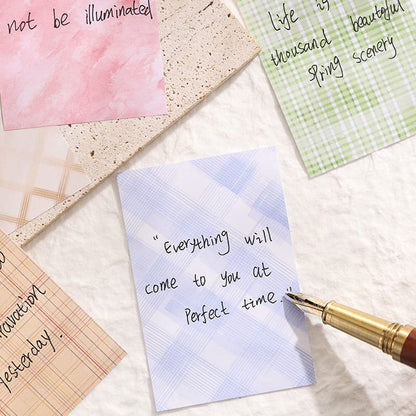 not be illuminated
life is
thousand beautiful
spring scenery
"Everything will
come to you at
Perfect time."
yesterday.